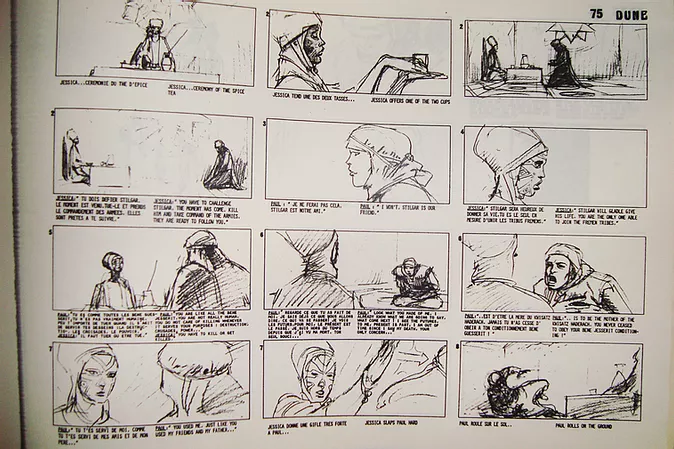 75 DUNE
JESSICA...CEREMONIE DU THE D'EPICE
JESSICA...CEREMONY OF THE SPICE
TEA
JESSICA TEND UNE DES DEUX TASSES...
JESSICA OFFERS ONE OF THE TWO CUPS
JESSICA:" TU DOIS DEFIER STILGAR.
LE MOMENT EST VENU.TUE-LE ET PRENDS
LE COMMANDEMENT DES ARMEES. ELLES
SONT PRETES A TE SUIVRE."
JESSICA:" YOU HAVE TO CHALLENGE
STILGAR. THE MOMENT HAS COME. KILL
HIM AND TAKE COMMAND OF THE ARMIES.
THEY ARE READY TO FOLLOW YOU."
PAUL : " JE NE FERAI PAS CELA.
STILGAR EST NOTRE AMI."
PAUL : " I WON'T. STILGAR IS OUR
FRIEND."
JESSICA:" STILGAR SERA HEUREUX DE
DONNER SA VIE.TU ES LE SEUL EN
MESURE D'UNIR LES TRIBUS FREMENS."
JESSICA:" STILGAR WILL GLADLY GIVE
HIS LIFE. YOU ARE THE ONLY ONE ABLE
TO JOIN THE FREMEN TRIBES."
PAUL:" TU ES COMME TOUTES LES BENE
PAUL:" YOU ARE LIKE ALL THE BENE
IT SERVES YOUR PURPOSES : DESTRUCTION.
JESSICA:" IL FAUT TUER OU ETRE TUE."
YOU HAVE TO KILL OR GET
KILLED."
PAUL:" REGARDE CE QUE TU AS FAIT DE
PAUL:" LOOK WHAT YOU MADE OF ME. I
ONLY CONCERN...
PAUL:"..EST D'ETRE LA MERE DU KWISATZ
HADERACH. JAMAIS TU N'AS CESSE D'
OBEIR A TON CONDITIONNEMENT BENE
GUESSERIT !"
PAUL:".. IS TO BE THE MOTHER OF THE
KWISATZ HADERACH. YOU NEVER CEASED
TO OBEY YOUR BENE JESSERIT CONDITION-
ING !"
PAUL:" TU T'ES SERVI DE MOI. COMME
TU T'ES SERVI DE MES AMIS ET DE MON
PERE..."
PAUL:" YOU USED ME. JUST LIKE YOU
USED MY FRIENDS AND MY FATHER..."
JESSICA DONNE UNE GIFLE TRES FORTE
A PAUL...
JESSICA SLAPS PAUL HARD
PAUL ROULE SUR LE SOL..
PAUL ROLLS ON THE GROUND